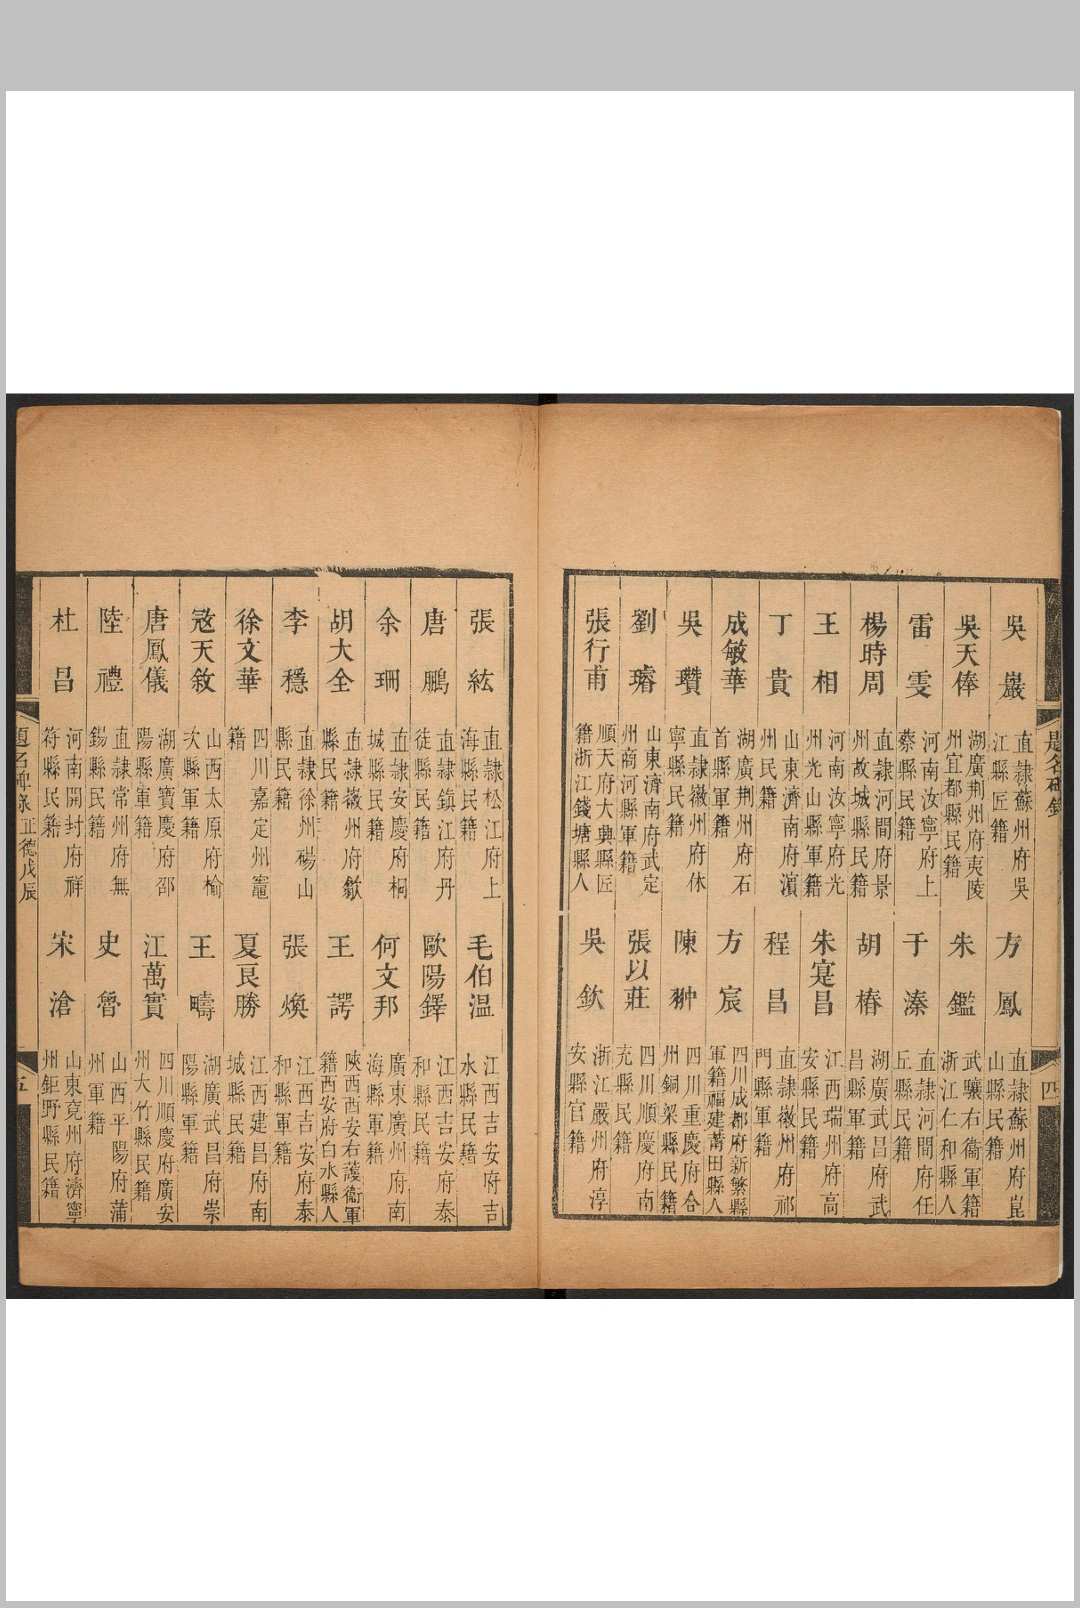 吳巖 直隸蘇州府吳江縣匠籍 方鳳 直隸蘇州府崑山縣民籍
吳天俸 湖廣荆州府夷陵州宜都縣民籍 朱鑑 武驤右衞軍籍浙江仁和縣人
雷雯 河南汝寧府上蔡縣民籍 于溱 直隸河間府任丘縣民籍
楊時周 直隸河間府景州故城縣民籍 胡椿 湖廣武昌府武昌縣軍籍
王相 河南汝寧府光州光山縣軍籍 朱寔昌 江西瑞州府高安縣民籍
丁貴 山東濟南府濱州民籍 程昌 直隸徽州府祁門縣軍籍
成敏華 湖廣荆州府石首縣軍籍 方宸 四川成都府新繁縣軍籍福建莆田縣人
吳瓚 直隸徽州府休寧縣民籍 陳翀 四川重慶府合州銅梁縣民籍
劉璿 山東濟南府武定州商河縣軍籍 張以莊 四川順慶府南充縣民籍
張行甫 順天府大興縣匠籍浙江錢塘縣人 吳欽 浙江嚴州府淳安縣官籍
題名碑錄 四
張紘 直隸松江府上海縣民籍 毛伯溫 江西吉安府吉水縣民籍
唐鵬 直隸鎮江府丹徒縣民籍 歐陽鐸 江西吉安府泰和縣民籍
余珊 直隸安慶府桐城縣民籍 何文邦 廣東廣州府南海縣軍籍
胡大全 直隸徽州府歙縣民籍 王諤 陝西西安右護衞軍籍西安府白水縣人
李穩 直隸徐州碭山縣民籍 張煥 江西吉安府泰和縣軍籍
徐文華 四川嘉定州竈籍 夏良勝 江西建昌府南城縣民籍
寇天敘 山西太原府榆次縣軍籍 王疇 湖廣武昌府崇陽縣軍籍
唐鳳儀 湖廣寶慶府邵陽縣軍籍 江萬實 四川順慶府廣安州大竹縣民籍
陸禮 直隸常州府無錫縣民籍 史魯 山西平陽府蒲州軍籍
杜昌 河南開封府祥符縣民籍 宋滄 山東兗州府濟寧州鉅野縣民籍
題名碑錄 正德戊辰 五